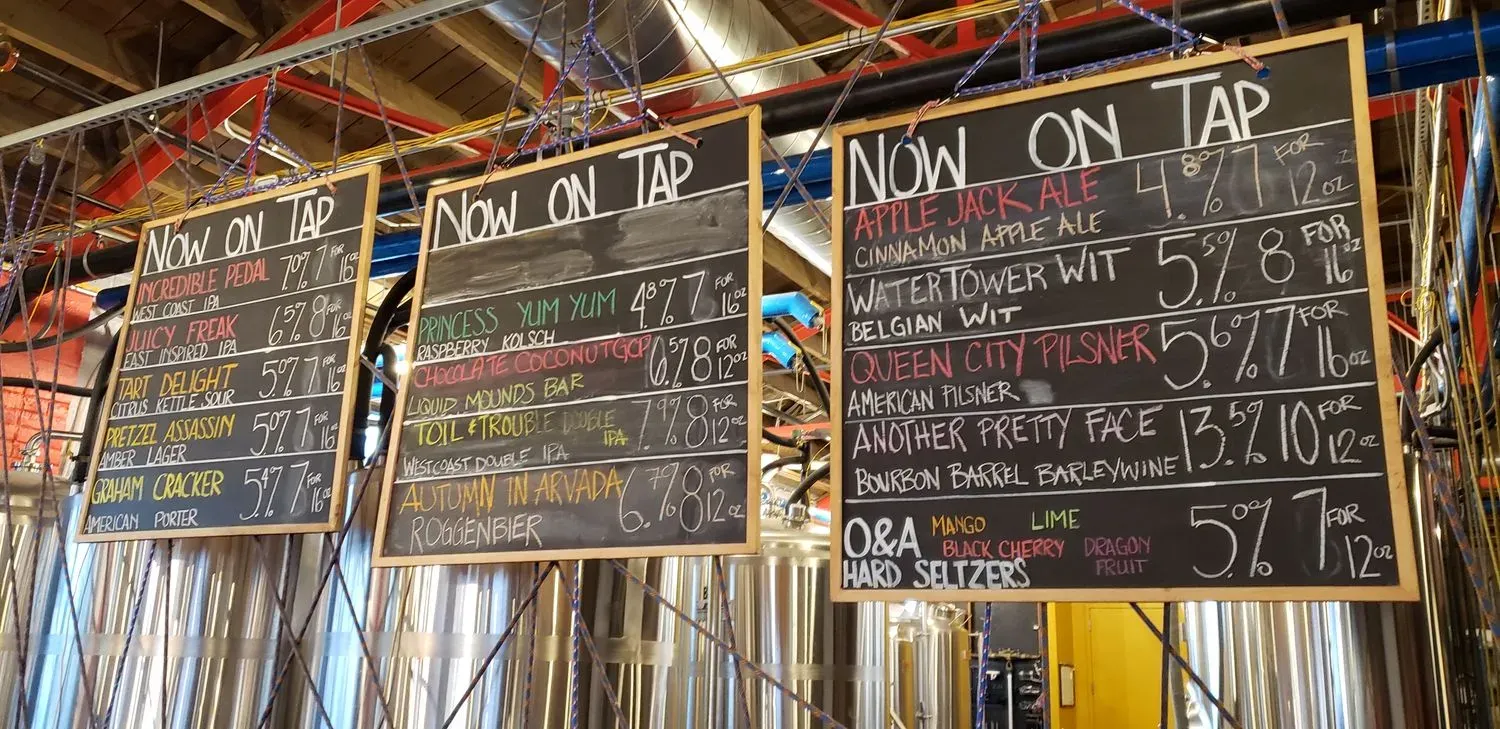 NOW ON TAP
INCREDIBLE PEDAL 7.0% 7 FOR 16 OZ
WEST COAST IPA
JUICY FREAK 6.5% 8 FOR 16 OZ
EAST INSPIRED IPA
TART DELIGHT 5.0% 7 FOR 16 OZ
CITRUS KETTLE SOUR
PRETZEL ASSASSIN 5.0% 7 FOR 16 OZ
AMBER LAGER
GRAHAM CRACKER 5.4% 7 FOR 16 OZ
AMERICAN PORTER
NOW ON TAP
PRINCESS YUM YUM 4.8% 7 FOR 16 OZ
RASPBERRY KOLSCH
CHOCOLATE COCONUT GCP 6.5% 8 FOR 12 OZ
LIQUID MOUNDS BAR
TOIL & TROUBLE DOUBLE IPA 7.9% 8 FOR 12 OZ
WESTCOAST DOUBLE IPA
AUTUMN IN ARVADA 6.7% 8 FOR 12 OZ
ROGGENBIER
NOW ON TAP
APPLE JACK ALE 4.8% 7 FOR 12 OZ
CINNAMON APPLE ALE
WATERTOWER WIT 5.5% 8 FOR 16 OZ
BELGIAN WIT
QUEEN CITY PILSNER 5.6% 7 FOR 16 OZ
AMERICAN PILSNER
ANOTHER PRETTY FACE 13.5% 10 FOR 12 OZ
BOURBON BARREL BARLEYWINE
O&A MANGO LIME 5.0% 7 FOR 12 OZ
BLACK CHERRY DRAGON FRUIT
HARD SELTZERS